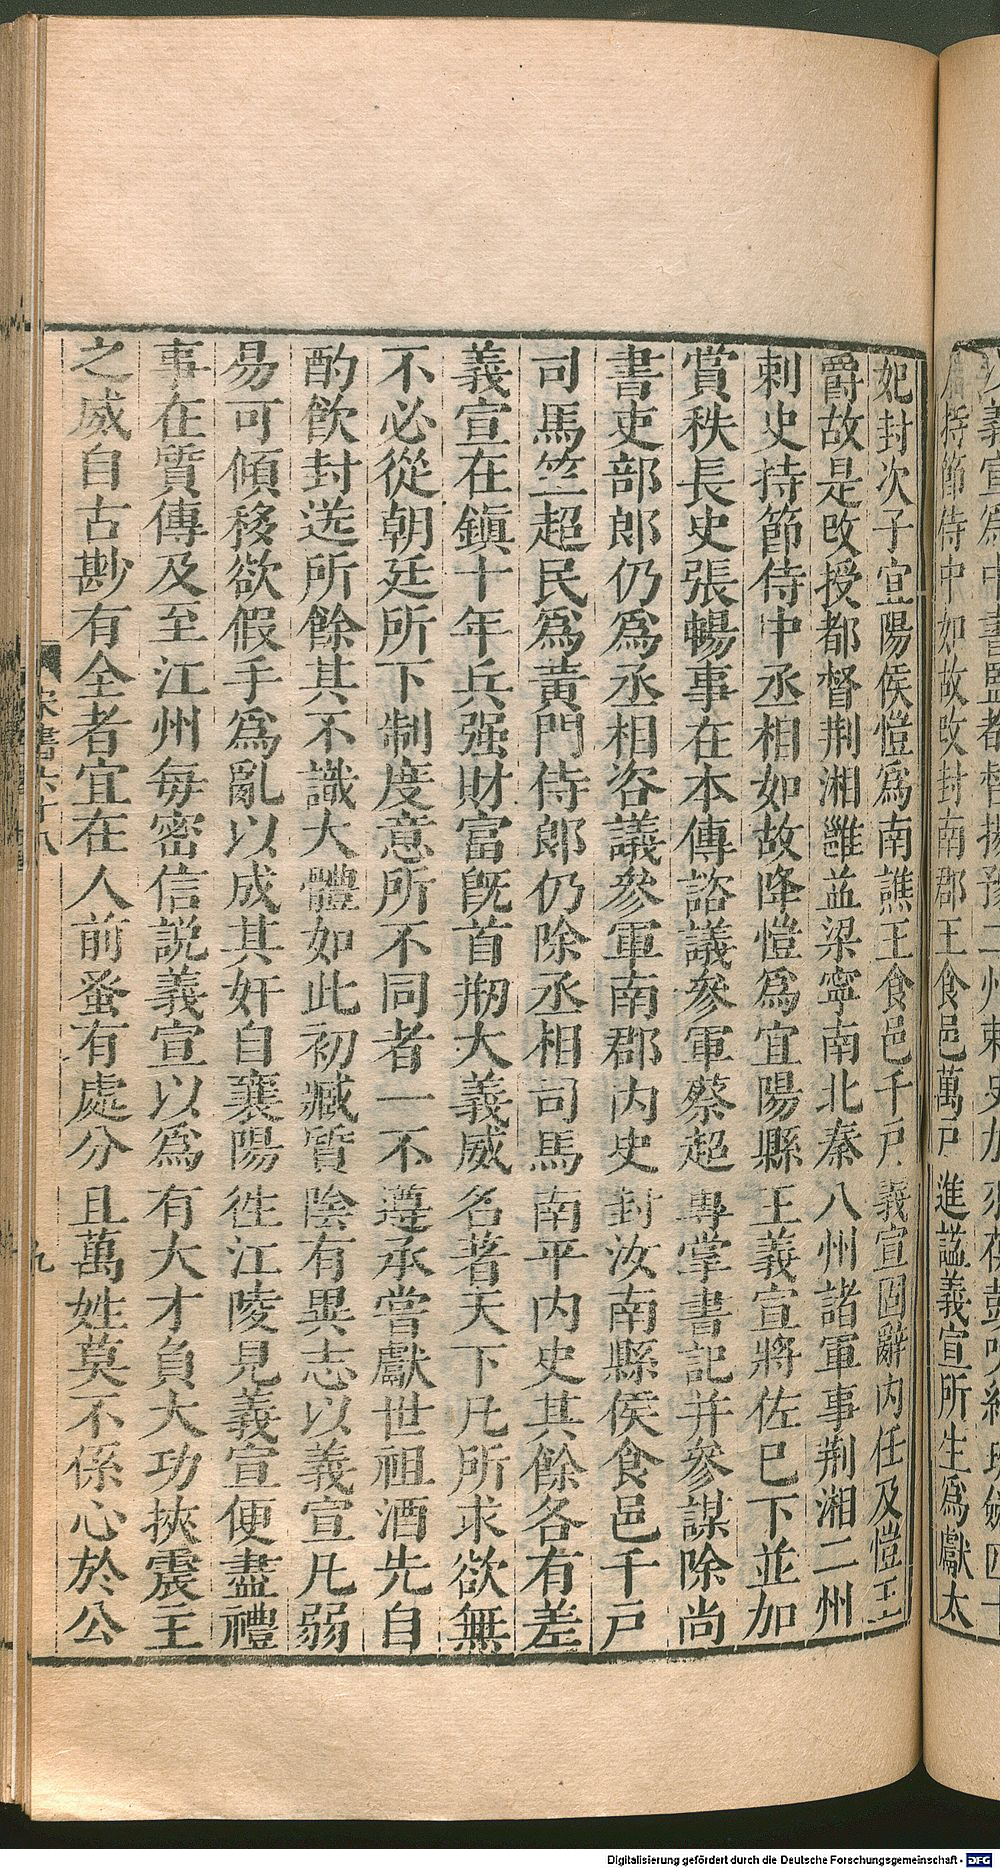 妃封次子宜陽侯愷爲南譙王食邑千戸義宣固辭内任及愷王
爵故是改授都督荆湘雝益梁寧南北秦八州諸軍事荆湘二州
刺史持節侍中丞相如故降愷爲宜陽縣王義宣將佐已下並加
賞秩長史張暢事在本傳諮議參軍蔡超專掌書記并參謀除尚
書吏部郎仍爲丞相咨議參軍南郡内史封汝南縣侯食邑千戸
司馬竺超民爲黄門侍郎仍除丞相司馬南平内史其餘各有差
義宣在鎮十年兵强財富旣首刱大義威名著天下凡所求欲無
不必從朝廷所下制度意所不同者一不遵承嘗獻世祖酒先自
酌飲封送所餘其不識大體如此初臧質陰有異志以義宣凡弱
易可傾移欲假手爲亂以成其奸自襄陽徃江陵見義宣便盡禮
事在質傳及至江州每密信説義宣以爲有大才負大功挾震主
之威自古尠有全者宜在人前蚤有處分且萬姓莫不係心於公
宋書六十八
九
持節侍中如故改封南郡王食邑萬戸進謚義宣所生爲獻太
Digitalisierung gefördert durch die Deutsche Forschungsgemeinschaft - DFG